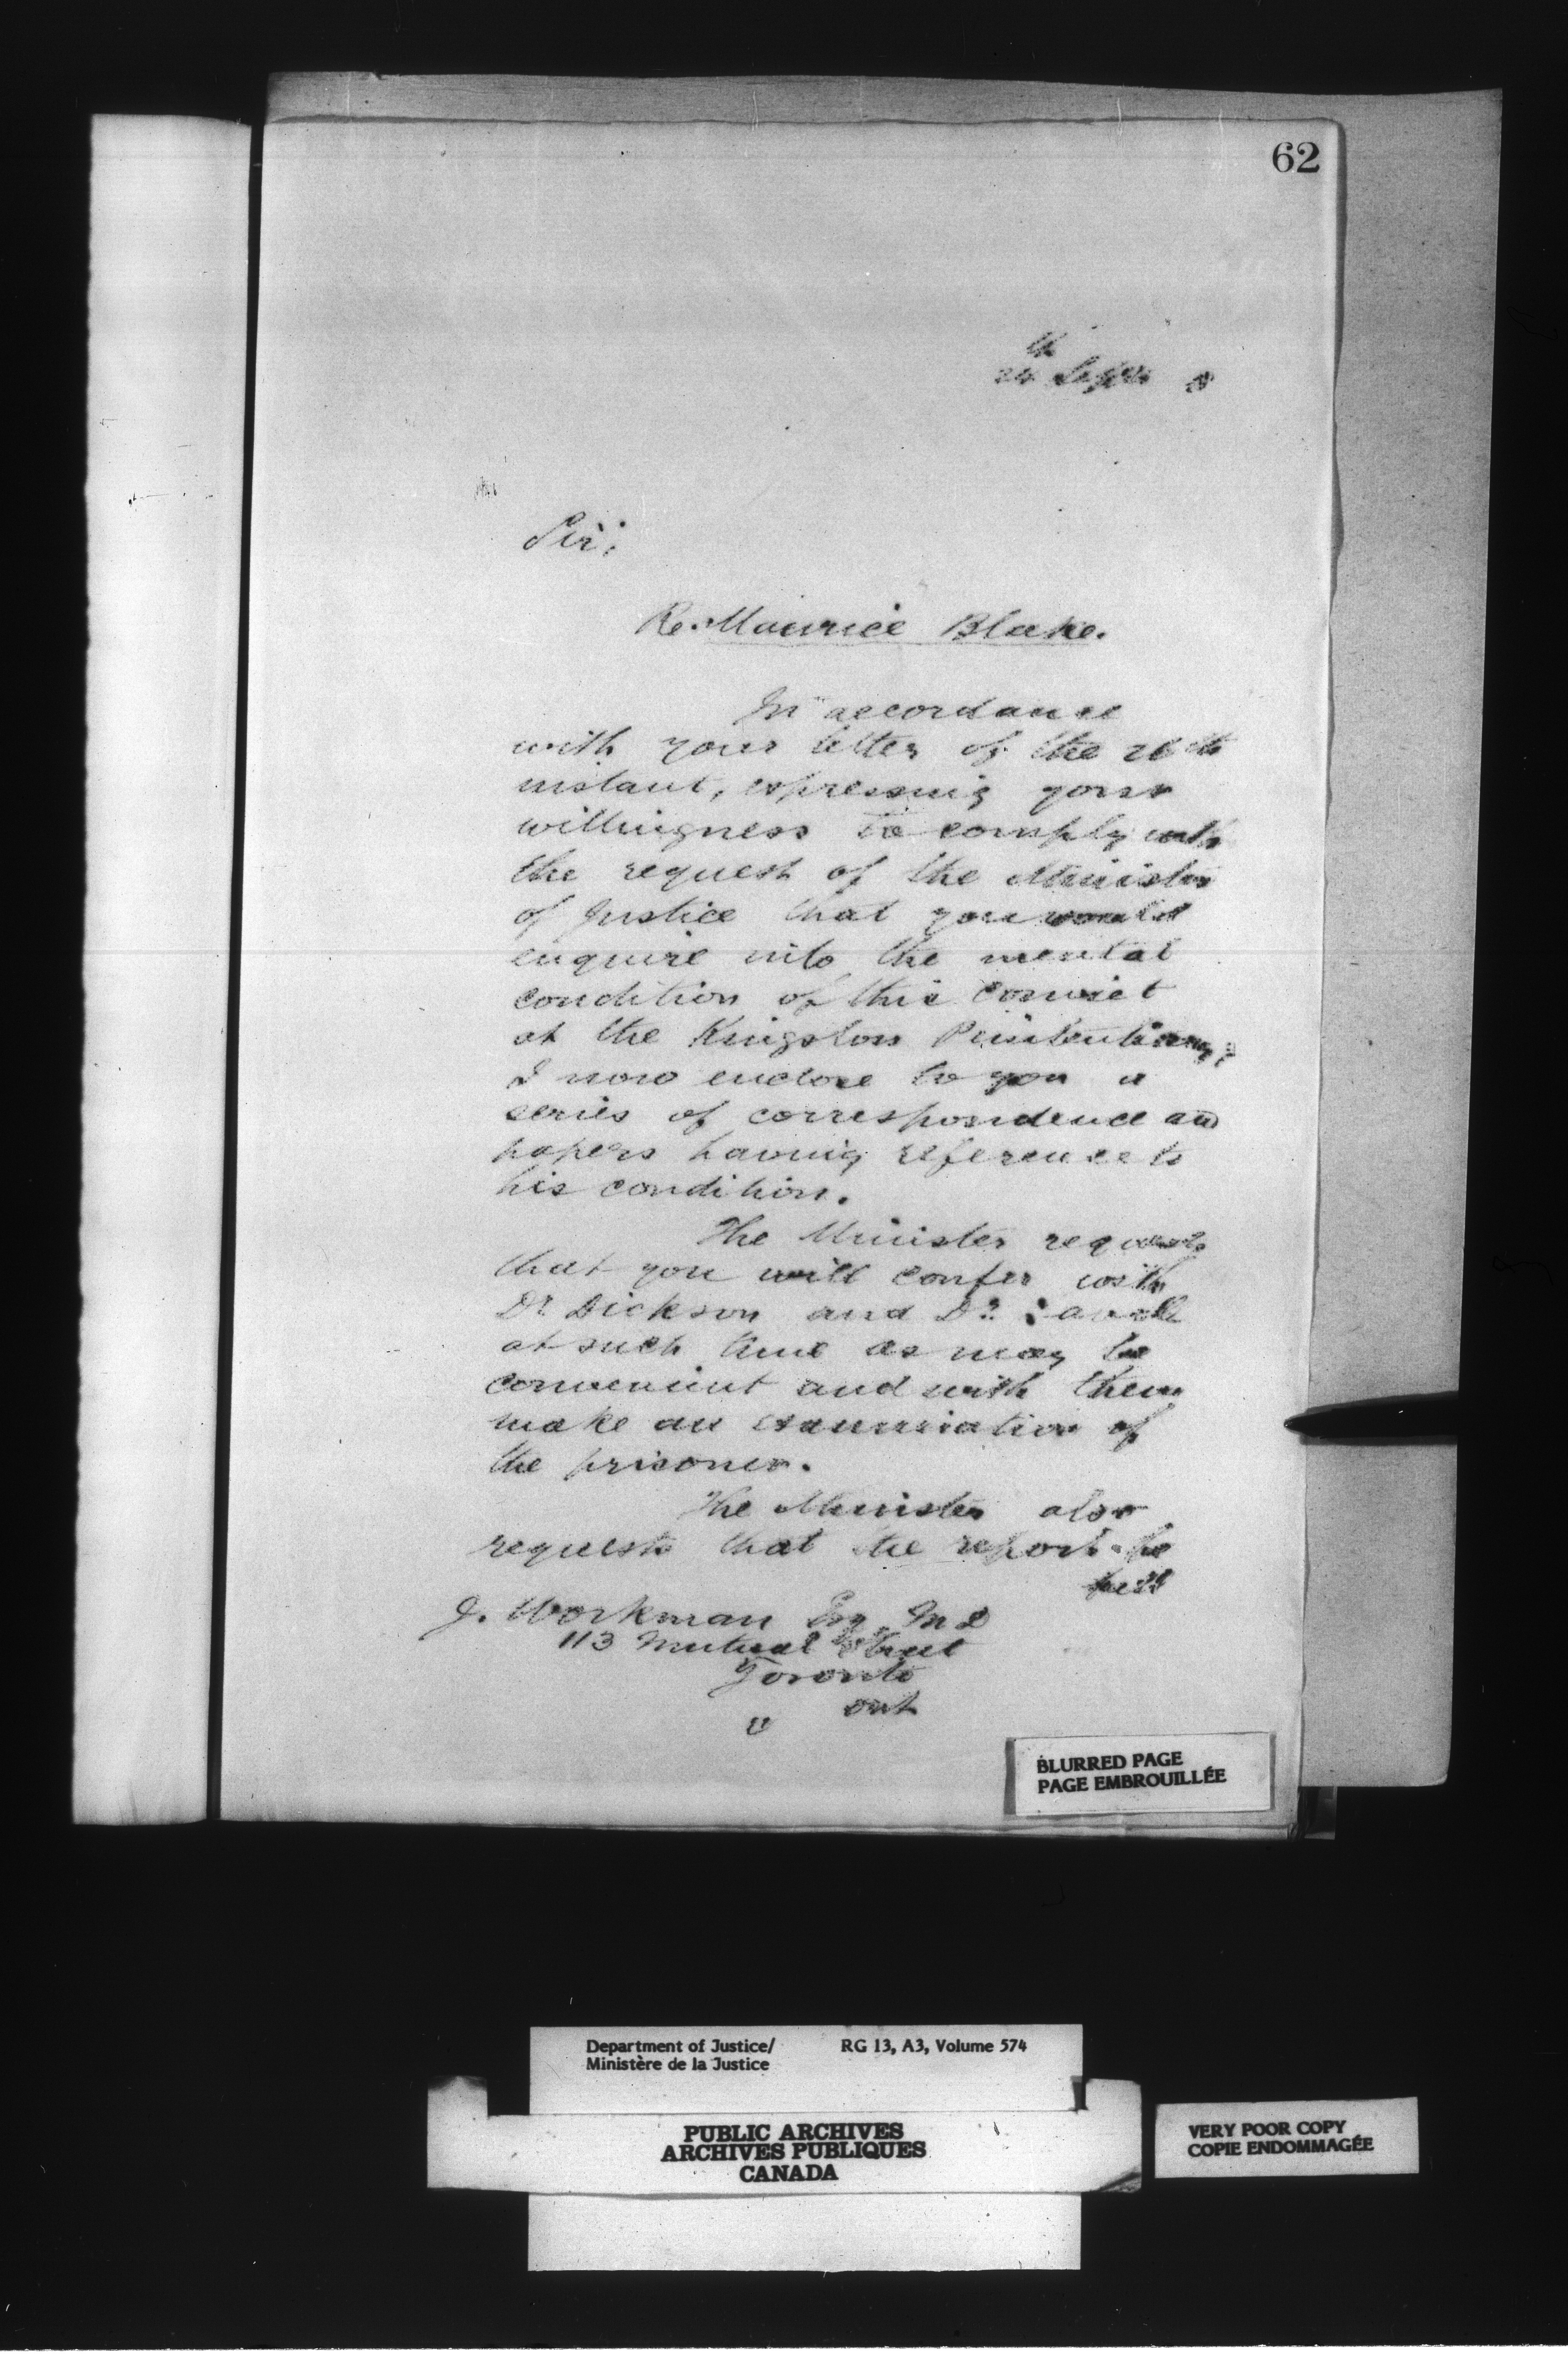 62
24th Sept 8
Sir;
Re. Maurice Blake.
In accordance
with your letter of the
instant, expressing your
willingness to comply with
the request of the Minister
of Justice that you would
enquire into the mental
condition of this convict
at the Kingston Penitentiary,
I now enclose to you a
series of correspondence and
papers having reference to
his condition.
The Minister requests
that you will confer with
Dr. Dickson and Dr.
at such time as may be
convenient and with them
make an examination of
the prisoner.
The Minister also
requests that the report be
J. Workman Esq. M D
113 Mutual Street
Toronto
Ont
BLURRED PAGE
PAGE EMBROUILLÉE
Department of Justice/ RG 13, A3, Volume 574
Ministère de la Justice
PUBLIC ARCHIVES
ARCHIVES PUBLIQUES
CANADA
VERY POOR COPY
COPIE ENDOMMAGÉE